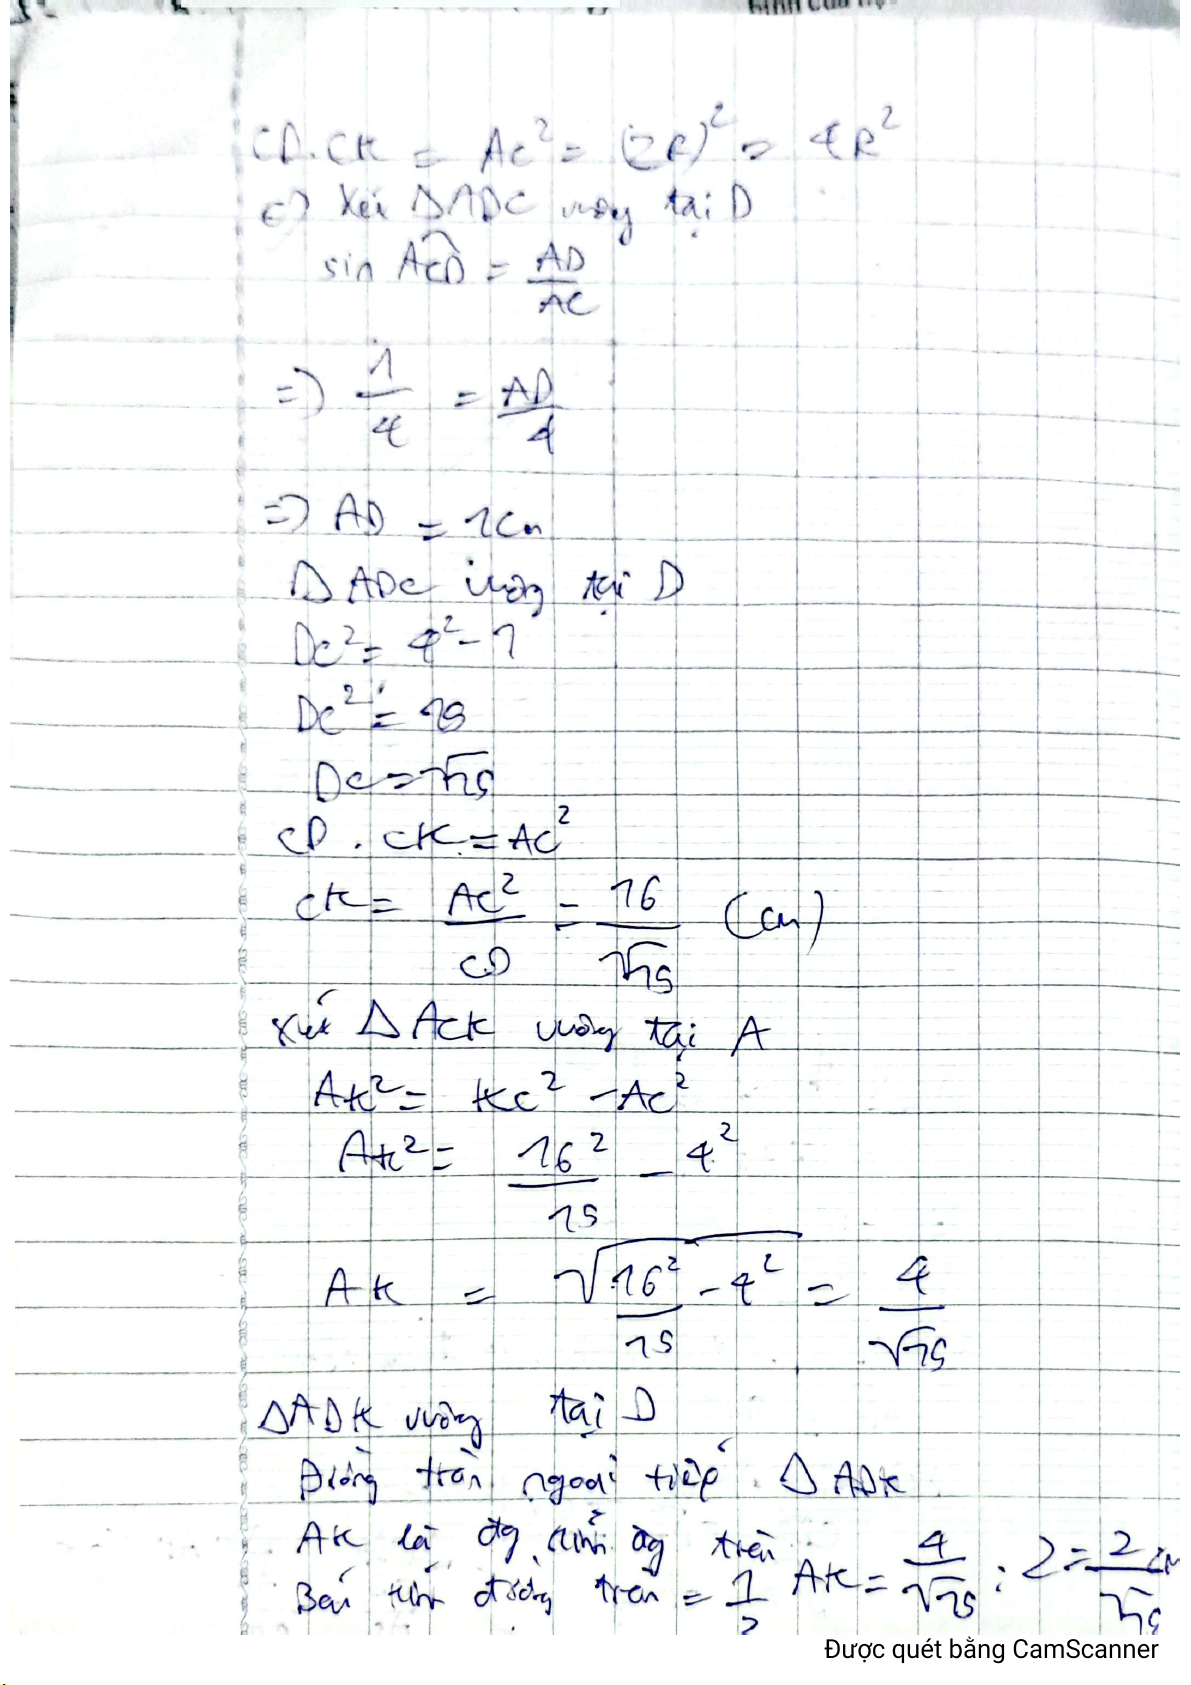 CD.CK = AC² = (2R)² = 4R²
c) Xét ΔADC vuông tại D
sin ACD = AD/AC
=> 1/4 = AD/4
=> AD = 1cm
ΔADC vuông tại D
DC² = 4² - 1
DC² = 15
DC = √15
CD . CK = AC²
CK = AC²/CD = 16/√15 (cm)
Xét ΔACK vuông tại A
AK² = KC² - AC²
AK² = 16²/15 - 4²
AK = √(16²/15 - 4²) = 4/√15
ΔADK vuông tại D
Đường tròn ngoại tiếp ΔADK
AK là đg kính đg tròn
Bán kính đường tròn = 1/2 AK = 4/√15 : 2 = 2/√15 cm
Được quét bằng CamScanner